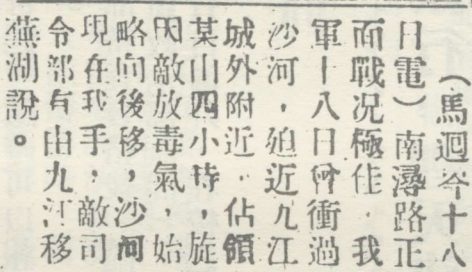 （馬迴岺十八
日電）南潯路正
面戰况極佳，我
軍十八日曾衝過
沙河，迫近九江
城外附近，佔領
某山四小時，旋
因敵放毒氣，始
略向後移，沙河
現在我手，敵司
令部有由九江移
蕪湖說。